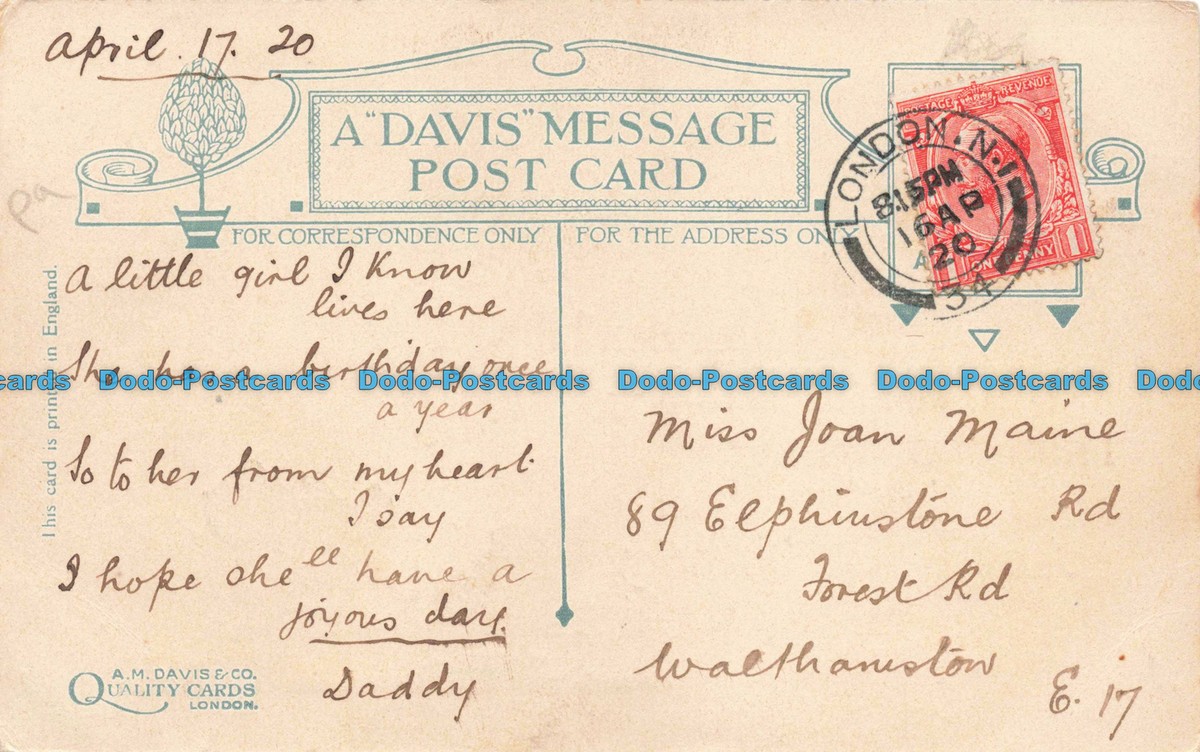 April. 17. 20
A "DAVIS" MESSAGE
POST CARD
FOR CORRESPONDENCE ONLY
FOR THE ADDRESS ON
POSTAGE REVENUE
1 ONE PENNY 1
LONDON. N.1
8.15 PM
16 AP
20
34
A little girl I know
lives here
She has a birthday once
a year
So to her from my heart
I say
I hope she'll have a
joyous day.
Daddy
Miss Joan Maine
89 Elphinstone Rd
Forest Rd
Walthamstow
E. 17
This card is printed in England.
A.M. DAVIS & CO.
QUALITY CARDS
LONDON.
pa
cards Dodo-Postcards Dodo-Postcards Dodo-Postcards Dodo-Postcards Dodo